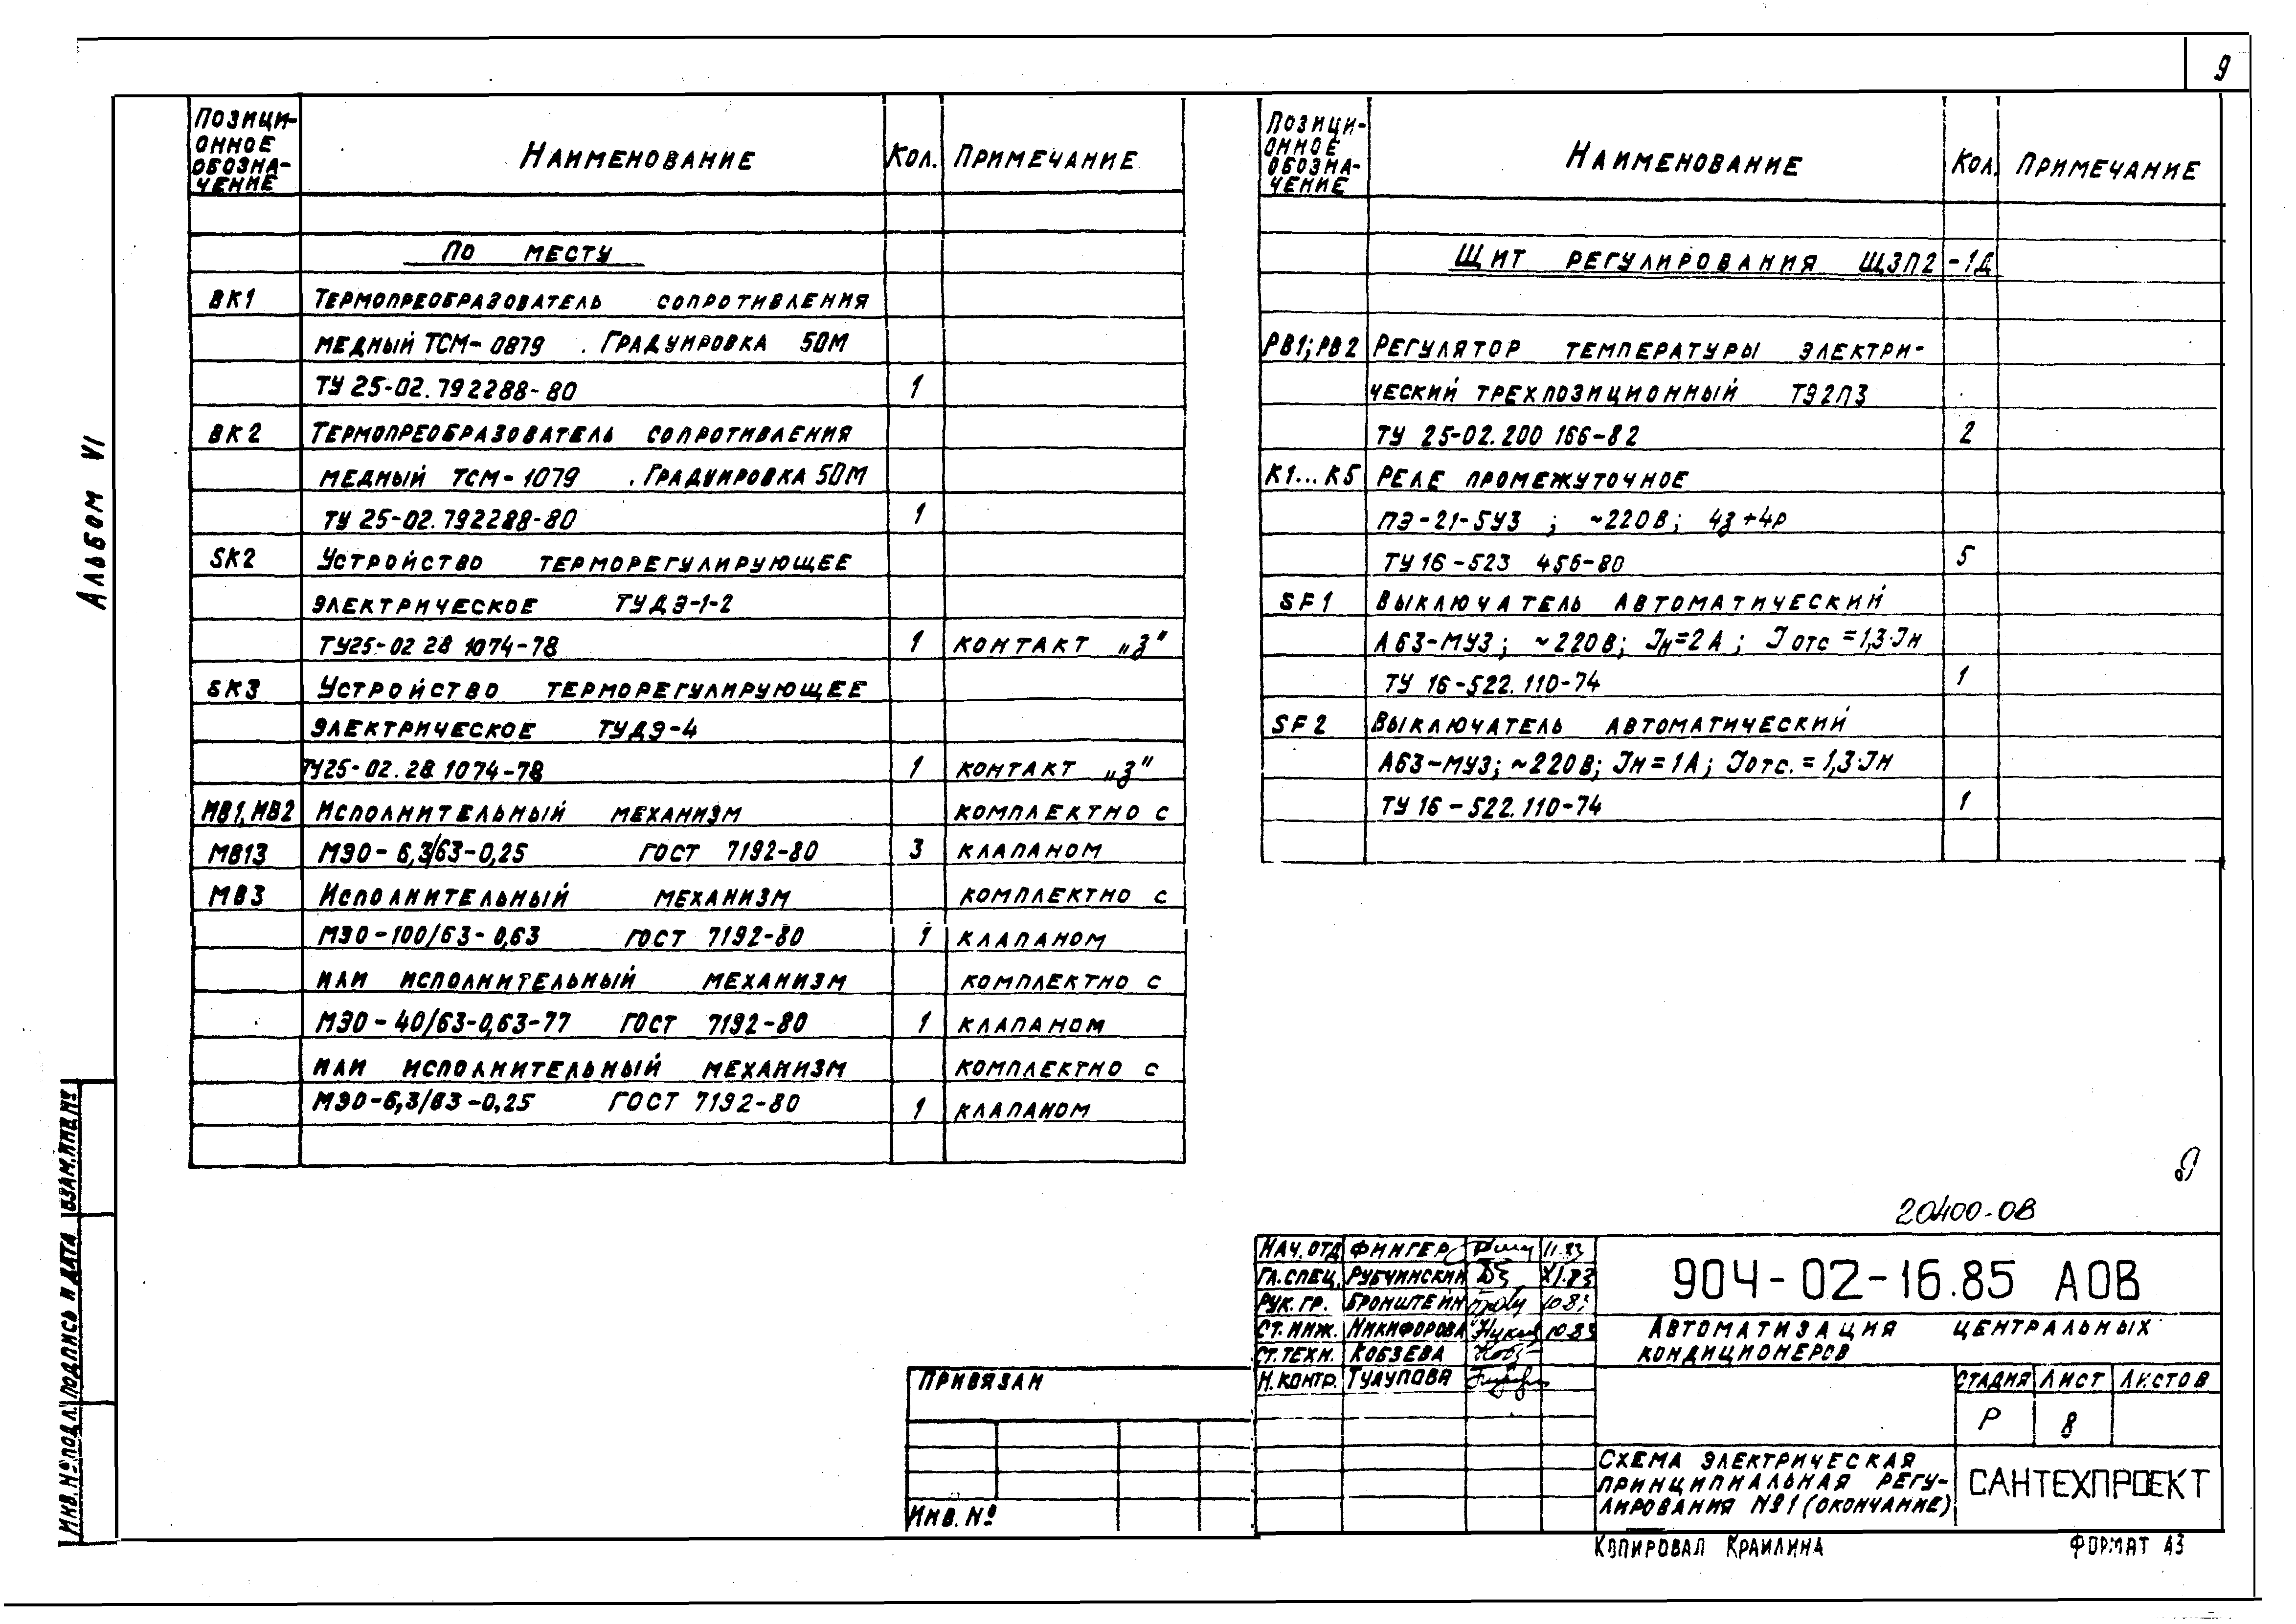 9
Альбом VI
Позици-
онное
обозна-
чение
Наименование
Кол.
Примечание
По месту
ВК1 Термопреобразователь сопротивления
медный ТСМ-0879 . Градуировка 50М
ТУ 25-02.792288-80 1
ВК2 Термопреобразователь сопротивления
медный ТСМ-1079 . Градуировка 50М
ТУ 25-02.792288-80 1
SK2 Устройство терморегулирующее
электрическое ТУДЭ-1-2
ТУ25-02 28 1074-78 1 контакт „З"
SK3 Устройство терморегулирующее
электрическое ТУДЭ-4
ТУ25-02.28.1074-78 1 контакт „З"
МВ1, МВ2 Исполнительный механизм комплектно с
МВ13 МЭО-6,3/63-0,25 ГОСТ 7192-80 3 клапаном
МВ3 Исполнительный механизм комплектно с
МЭО-100/63-0,63 ГОСТ 7192-80 1 клапаном
или исполнительный механизм комплектно с
МЭО-40/63-0,63-77 ГОСТ 7192-80 1 клапаном
или исполнительный механизм комплектно с
МЭО-6,3/63-0,25 ГОСТ 7192-80 1 клапаном
Позици-
онное
обозна-
чение
Наименование
Кол.
Примечание
Щит регулирования ЩЗП2-1Д
РВ1; РВ2 Регулятор температуры электри-
ческий трехпозиционный ТЭ2П3
ТУ 25-02.200 166-82 2
К1...К5 Реле промежуточное
ПЭ-21-5У3 ; ~220В; 4з+4р
ТУ 16-523 456-80 5
SF1 Выключатель автоматический
А63-МУ3; ~220В; Iн=2А; Iотс=1,3·Iн
ТУ 16-522.110-74 1
SF2 Выключатель автоматический
А63-МУ3; ~220В; Iн=1А; Iотс.=1,3·Iн
ТУ 16-522.110-74 1
20400-08
Нач. отд Фингер 11.83
Гл. спец. Рубчинский XI.83
Рук. гр. Бронштейн 10.83
Ст. инж. Никифорова 10.83
Ст. техн. Кобзева
Н. контр. Тулупова
904-02-16.85 АОВ
Автоматизация центральных
кондиционеров
Стадия Лист Листов
Р 8
Схема электрическая
принципиальная регу-
лирования №1 (окончание)
САНТЕХПРОЕКТ
Привязан
Инв. №
Копировал Краилина
Формат А3
Инв. № подл. Подпись и дата Взам. инв. №